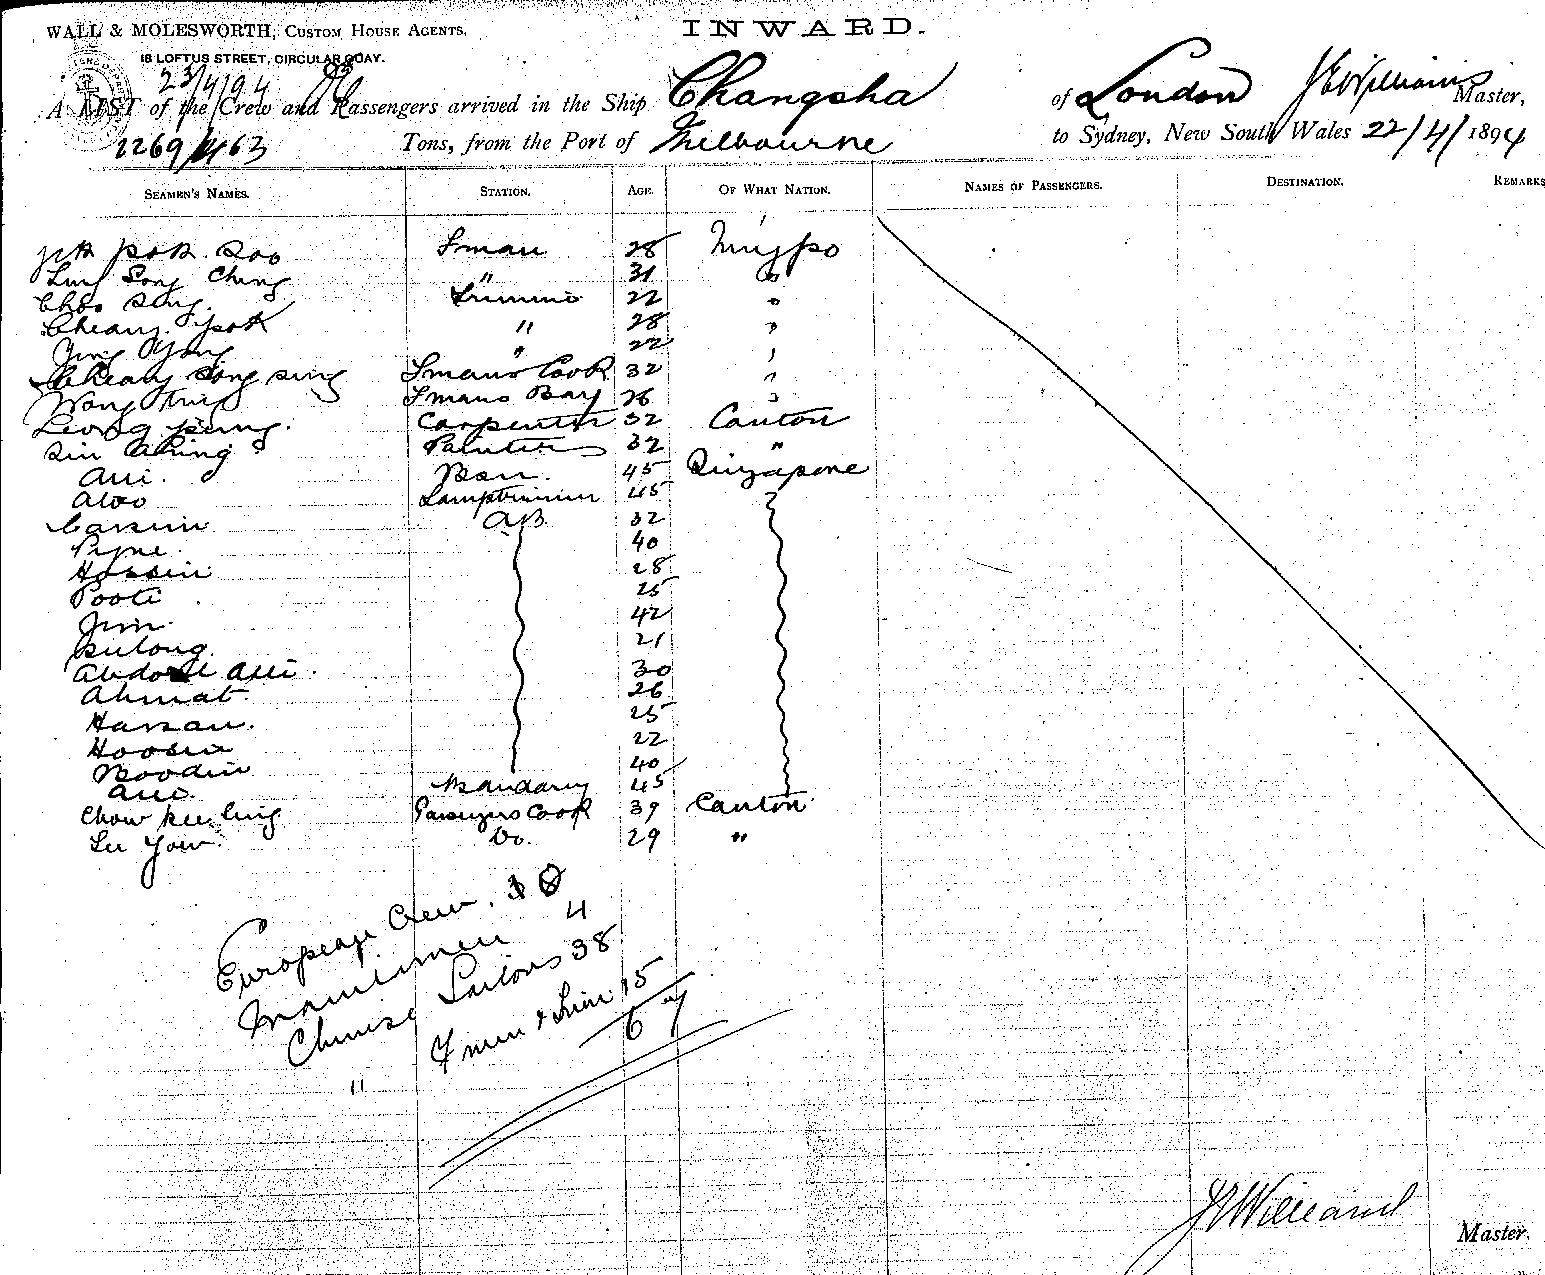 INWARD.
WALL & MOLESWORTH, CUSTOM HOUSE AGENTS,
18 LOFTUS STREET, CIRCULAR QUAY.
23/4/94
A LIST of the Crew and Passengers arrived in the Ship Changsha of London J E Williams Master,
2269/1463 Tons, from the Port of Melbourne to Sydney, New South Wales 22/4/1894
SEAMEN'S NAMES. STATION. AGE. OF WHAT NATION. NAMES OF PASSENGERS. DESTINATION. REMARKS
Soo Fman 28 Ningpo
Song Ching " 31 "
Choo Sing. Trimmer 22 "
Cheang Yook " 28 "
Ying " 22 "
Cheang Song Sing Fmans Cook 32 "
Wong Fmans Boy 26 "
Leong Carpenter 32 Canton
Painter 32 "
Alli. Bsn. 45 Singapore
Aloo Lamptrimmer 45
Cassim A.B. 32
40
Hossin 28
Pooti 25
Jim 42
21
Abdool Alli. 30
Ahmat 26
Hassan. 25
Hoosin 22
Boodin 40
45
Chow Kee Ling Passengers Cook 39 Canton
Lee Yow. Do. 29 "
European Crew. 10
4
Chinese Sailors 38
" Fmen & Trim 15
67
J E Williams
Master.